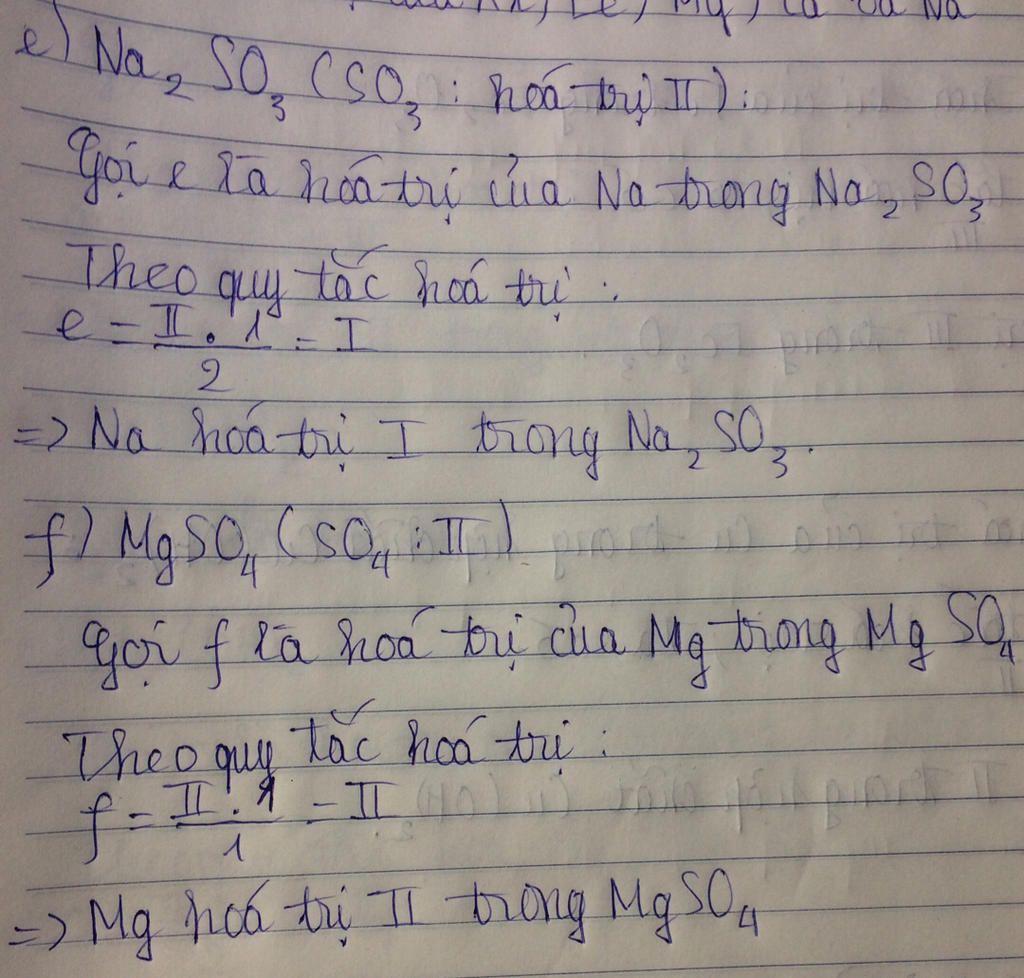 Mg, Ca và Na
e) Na₂SO₃ (SO₃ : hoá trị II) :
Gọi e là hoá trị của Na trong Na₂SO₃
Theo quy tắc hoá trị :
e = II . 1 / 2 = I
=> Na hoá trị I trong Na₂SO₃.
f) MgSO₄ (SO₄ : II)
Gọi f là hoá trị của Mg trong MgSO₄
Theo quy tắc hoá trị :
f = II . 1 / 1 = II
=> Mg hoá trị II trong MgSO₄